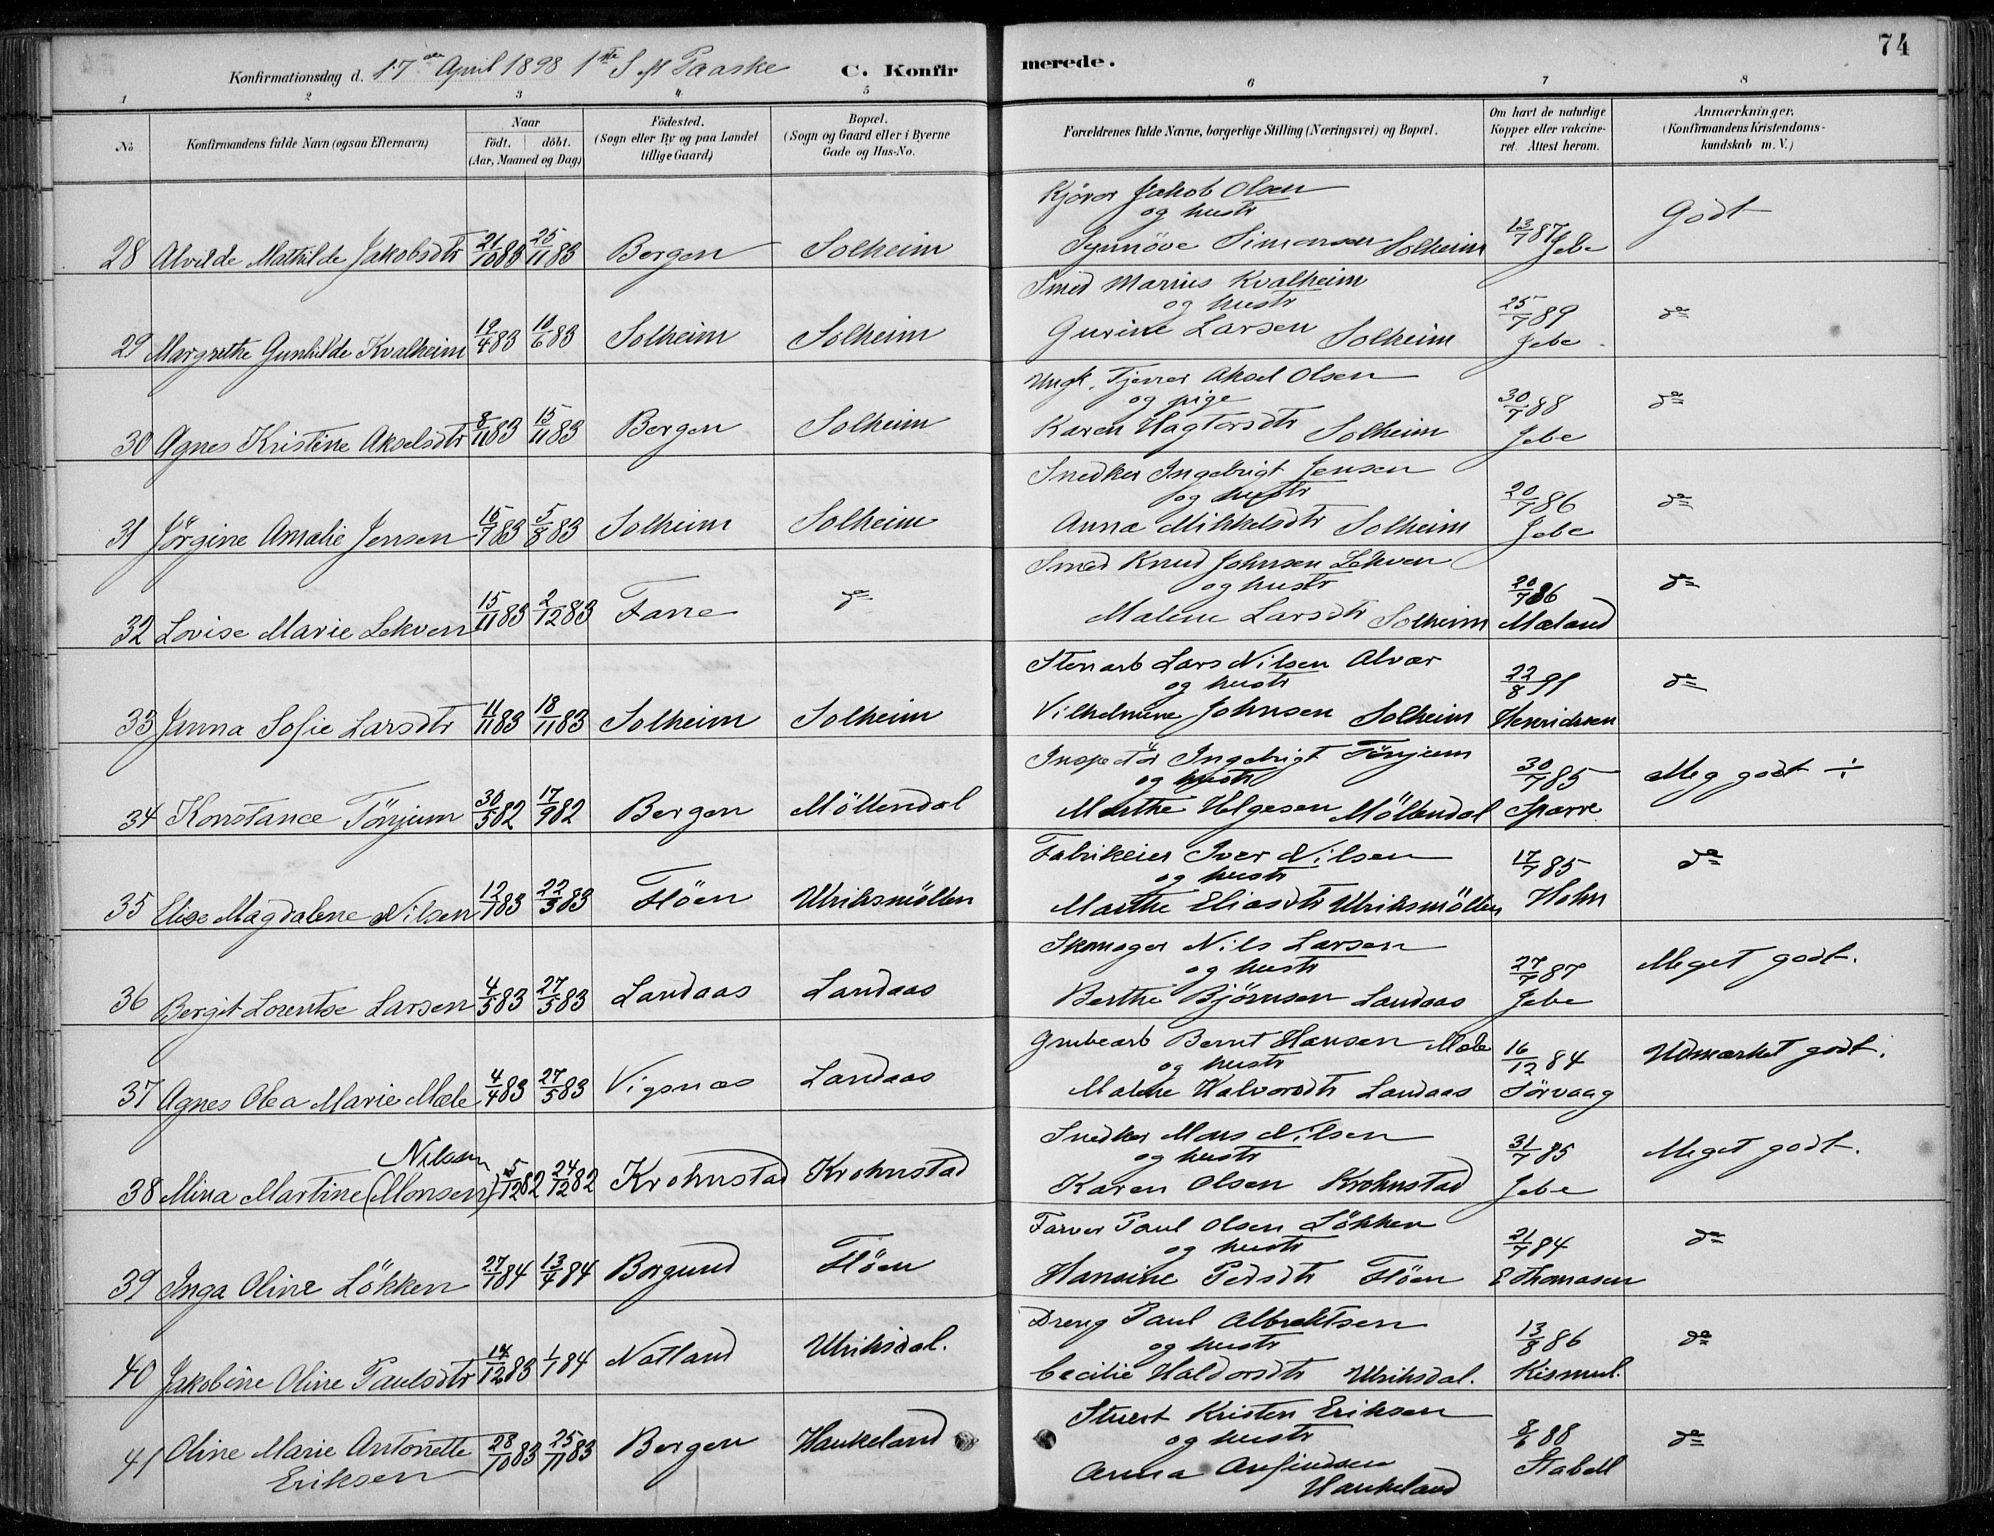 74
Konfirmationsdag d. 17de April 1898 1ste S. eft Paaske C. Konfirmerede.
1 2 3 4 5 6 7 8
No
Konfirmandens fulde Navn (ogsaa Efternavn)
Naar
født. døbt.
(Aar, Maaned og Dag)
Fødested.
(Sogn eller By og paa Landet tillige Gaard)
Bopæl.
(Sogn og Gaard eller i Byerne Gade og Hus-No.
Forældrenes fulde Navne, borgerlige Stilling (Næringsvei) og Bopæl.
Om havt de naturlige Kopper eller vakcineret. Attest herom.
Anmærkninger.
(Konfirmandens Kristendomskundskab m. V.)
Kjører Jakob Olsen
og hustr
28 Alvilde Mathilde Jakobsdtr 21/10 83 25/11 83 Bergen Solheim Synnøve Simonsen Solheim 13/7 87 Jebe Godt
Smed Marius Kvalheim
og hustr
29 Margrethe Gunhilde Kvalheim 19/4 83 10/6 83 Solheim Solheim Gurine Larsen Solheim 25/7 89 Jebe do
Ungk. Tjener Aksel Olsen
og pige
30 Agnes Kristine Akselsdtr 8/11 83 15/11 83 Bergen Solheim Karen Hagtorsdtr Solheim 30/7 88 Jebe do
Snedker Ingebrigt Jensen
og hustr
31 Jørgine Amalie Jensen 15/7 83 5/8 83 Solheim Solheim Anna Mikkelsdtr Solheim 20/7 86 Jebe do
Smed Knud Johnsen Lekven
og hustr
32 Lovise Marie Lekven 15/11 83 2/12 83 Fane do Malene Larsdtr Solheim 20/7 86 Mæland do
Stenarb Lars Nilsen Alvær
og hustr
33 Janna Sofie Larsdtr 11/11 83 18/11 83 Solheim Solheim Vilhelmine Johnsen Solheim 22/8 91 Henriksen do
Inspektør Ingebrigt Tönjum
og hustr
34 Konstance Tönjum 30/5 82 17/9 82 Bergen Möllendal Marthe Helgesen Möllendal 30/7 85 Sparre Meg godt ÷
Fabrikeier Iver Nilsen
og hustr
35 Elise Magdalene Nilsen 12/1 83 22/3 83 Flöen Ulriksmöllen Marthe Eliasdtr Ulriksmöllen 17/7 85 Holm do
Skomager Nils Larsen
og hustr
36 Bergit Lorentse Larsen 4/5 83 27/5 83 Landaas Landaas Berthe Bjørnsen Landaas 27/7 87 Jebe Meget godt.
Grubearb Bernt Hansen Mæle
og hustr
37 Agnes Olea Marie Mæle 4/4 83 27/5 83 Vigsnæs Landaas Malene Halvorsdtr Landaas 16/12 84 Sørvaag Udmærket godt.
Snedker Mons Nilsen
og hustr
Nilsen
38 Mina Martine (Monsen) 5/12 82 24/12 82 Krohnstad Krohnstad Karen Olsen Krohnstad 31/7 85 Jebe Meget godt.
Farver Paul Olsen Løkken
og hustr
39 Inga Oline Løkken 27/1 84 13/4 84 Borgund Flöen Hansine Pedsdtr Flöen 21/7 84 E Thomasen do
Dreng Paul Albrektsen
og hustr
40 Jakobine Oline Paulsdtr 14/12 83 1/1 84 Natland Ulriksdal. Cecilie Haldorsdtr Ulriksdal. 13/8 86 Kismul. do
Stuert Kristen Eriksen
og hustr
41 Oline Marie Antonette Eriksen 28/10 83 25/11 83 Bergen Haukeland Anna Anfindsen Haukeland 8/6 88 Stabell do